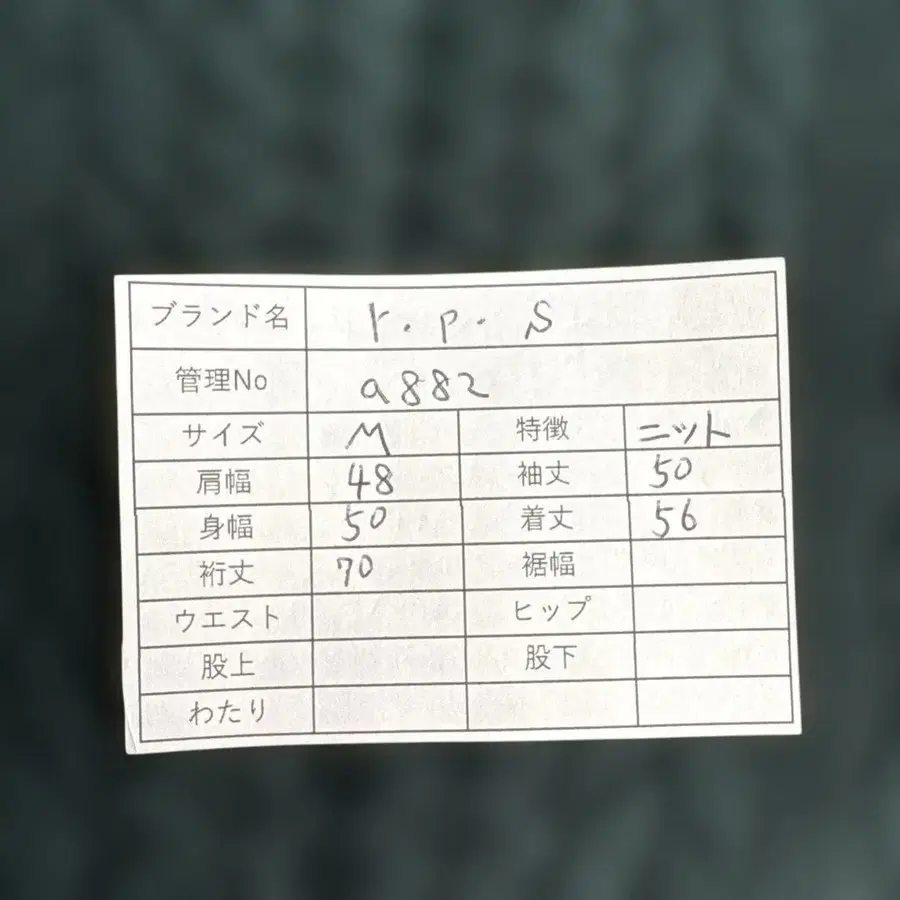 ブランド名 r.p.s
管理No a882
サイズ M 特徴 ニット
肩幅 48 袖丈 50
身幅 50 着丈 56
裄丈 70 裾幅
ウエスト ヒップ
股上 股下
わたり